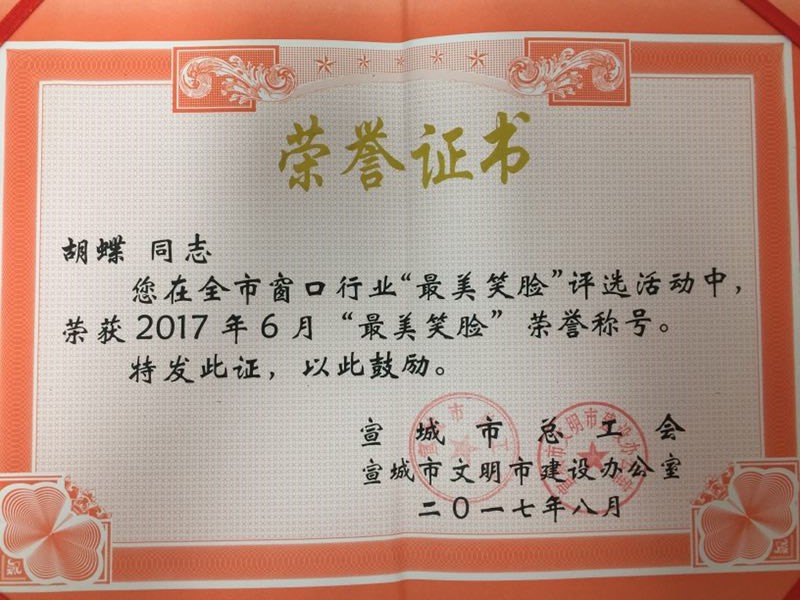 荣誉证书
胡蝶 同志
您在全市窗口行业“最美笑脸”评选活动中，
荣获2017年6月“最美笑脸”荣誉称号。
特发此证，以此鼓励。
宣城市总工会
宣城市文明市建设办公室
二〇一七年八月